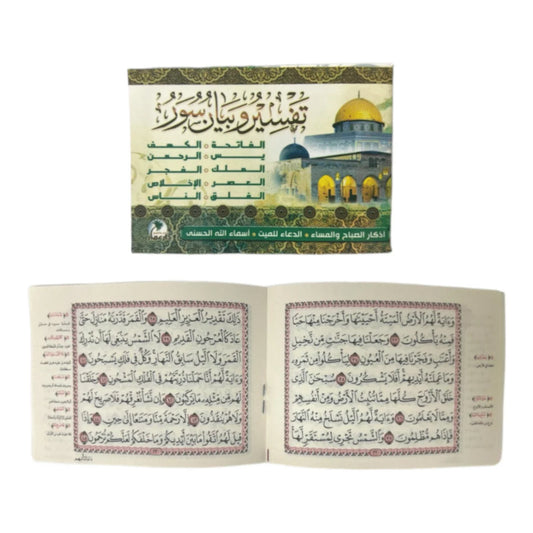 تفسير وبيان سور
الفاتحة * الكهف
يس * الرحمن
الملك * الفجر
العصر * الإخلاص
الفلق * الناس
أذكار الصباح والمساء * الدعاء للميت * أسماء الله الحسنى
وَءَايَةٌ لَّهُمُ ٱلْأَرْضُ ٱلْمَيْتَةُ أَحْيَيْنَٰهَا وَأَخْرَجْنَا مِنْهَا حَبًّا
فَمِنْهُ يَأْكُلُونَ ٣٣ وَجَعَلْنَا فِيهَا جَنَّٰتٍ مِّن نَّخِيلٍ
وَأَعْنَٰبٍ وَفَجَّرْنَا فِيهَا مِنَ ٱلْعُيُونِ ٣٤ لِيَأْكُلُوا۟ مِن ثَمَرِهِۦ
وَمَا عَمِلَتْهُ أَيْدِيهِمْ أَفَلَا يَشْكُرُونَ ٣٥ سُبْحَٰنَ ٱلَّذِى
خَلَقَ ٱلْأَزْوَٰجَ كُلَّهَا مِمَّا تُنۢبِتُ ٱلْأَرْضُ وَمِنْ أَنفُسِهِمْ
وَمِمَّا لَا يَعْلَمُونَ ٣٦ وَءَايَةٌ لَّهُمُ ٱلَّيْلُ نَسْلَخُ مِنْهُ ٱلنَّهَارَ
فَإِذَا هُم مُّظْلِمُونَ ٣٧ وَٱلشَّمْسُ تَجْرِى لِمُسْتَقَرٍّ لَّهَا
ذَٰلِكَ تَقْدِيرُ ٱلْعَزِيزِ ٱلْعَلِيمِ ٣٨ وَٱلْقَمَرَ قَدَّرْنَٰهُ مَنَازِلَ حَتَّىٰ
عَادَ كَٱلْعُرْجُونِ ٱلْقَدِيمِ ٣٩ لَا ٱلشَّمْسُ يَنۢبَغِى لَهَآ أَن تُدْرِكَ
ٱلْقَمَرَ وَلَا ٱلَّيْلُ سَابِقُ ٱلنَّهَارِ وَكُلٌّ فِى فَلَكٍ يَسْبَحُونَ ٤٠
وَءَايَةٌ لَّهُمْ أَنَّا حَمَلْنَا ذُرِّيَّتَهُمْ فِى ٱلْفُلْكِ ٱلْمَشْحُونِ ٤١ وَخَلَقْنَا
لَهُم مِّن مِّثْلِهِۦ مَا يَرْكَبُونَ ٤٢ وَإِن نَّشَأْ نُغْرِقْهُمْ فَلَا صَرِيخَ لَهُمْ
وَلَا هُمْ يُنقَذُونَ ٤٣ إِلَّا رَحْمَةً مِّنَّا وَمَتَٰعًا إِلَىٰ حِينٍ ٤٤ وَإِذَا
قِيلَ لَهُمُ ٱتَّقُوا۟ مَا بَيْنَ أَيْدِيكُمْ وَمَا خَلْفَكُمْ لَعَلَّكُمْ تُرْحَمُونَ ٤٥